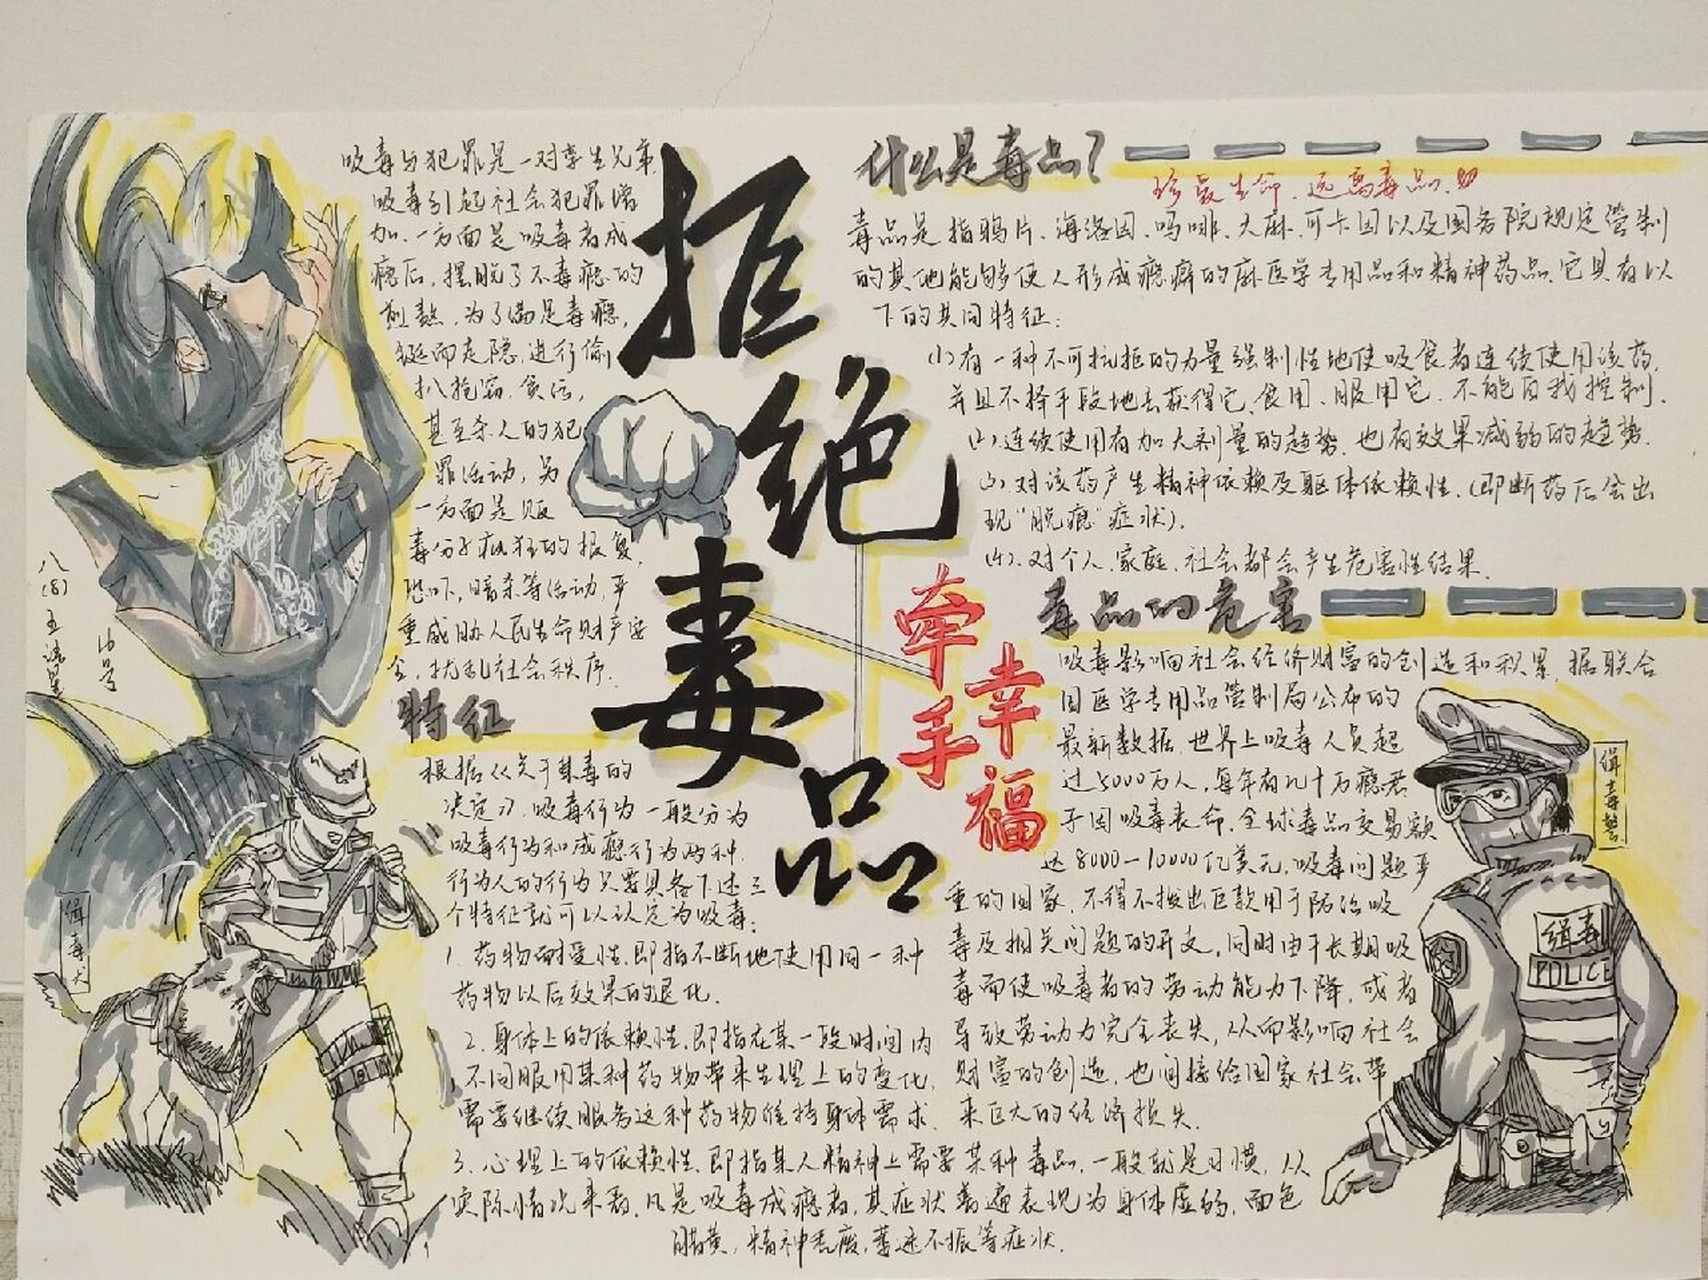 拒绝毒品
牵手
幸福
吸毒与犯罪是一对孪生兄弟.
吸毒引起社会犯罪增
加.一方面是吸毒者成
瘾后,摆脱了不毒瘾的
煎熬.为了满足毒瘾,
铤而走隐.进行偷
扒抢窃.贪污,
甚至杀人的犯
罪活动,另
一方面是贩
毒分子疯狂的报复,
恐吓,暗杀等活动,严
重威胁人民生命财产安
全,扰乱社会秩序.
八(8)
16号
特征
根据《关于禁毒的
决定》,吸毒行为一般分为
吸毒行为和成瘾行为两种.
行为人的行为只要具备下述三
个特征就可以认定为吸毒:
1.药物耐受性,即指不断地使用同一种
药物以后效果的退化.
2.身体上的依赖性,即指在某一段时间内
不间服用某种药物带来生理上的变化,
需要继续服务这种药物维持身体需求.
3.心理上的依赖性,即指某人精神上需要某种毒品,一般就是习惯,从
实际情况来看,凡是吸毒成瘾者,其症状普遍表现为身体虚弱,面色
腊黄,精神颓废,萎迷不振等症状.
缉毒犬
什么是毒品?
珍爱生命.远离毒品.
毒品是指鸦片、海洛因、吗啡、大麻、可卡因以及国务院规定管制
的其他能够使人形成瘾癖的麻医学专用品和精神药品.它具有以
下的共同特征:
(1)有一种不可抗拒的力量强制性地使吸食者连续使用该药,
并且不择手段地去获得它、食用、服用它.不能自我控制.
(2)连续使用有加大剂量的趋势.也有效果减弱的趋势.
(3)对该药产生精神依赖及躯体依赖性.(即断药后会出
现"脱瘾"症状).
(4).对个人.家庭.社会都会产生危害性结果.
毒品的危害
吸毒影响社会经济财富的创造和积累,据联合
国医学专用品管制局公布的
最新数据.世界上吸毒人员超
过5000万人,每年有几十万瘾君
子因吸毒丧命.全球毒品交易额
达8000—10000亿美元.吸毒问题严
重的国家,不得不拨出巨款用于防治吸
毒及相关问题的开支,同时由于长期吸
毒而使吸毒者的劳动能力下降,或者
导致劳动力完全丧失,从而影响社会
财富的创造,也间接给国家社会带
来巨大的经济损失.
缉毒警
缉毒
POLICE